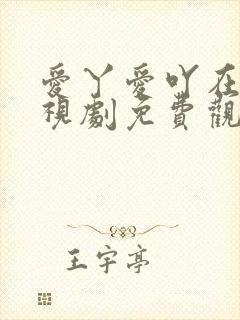 愛丫愛吖在
視劇免費觀
王宇亭